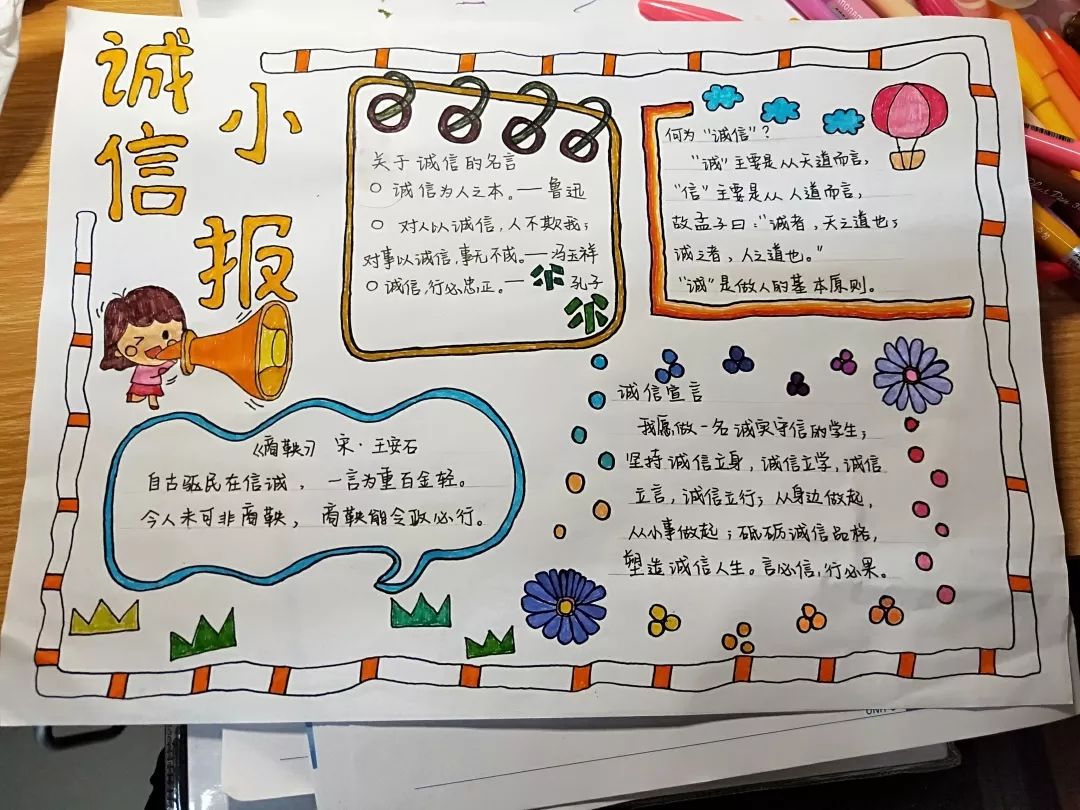 诚信
小报
关于诚信的名言
诚信为人之本。——鲁迅
对人以诚信,人不欺我;
对事以诚信,事无不成。——冯玉祥
诚信,行必忠正。——孔子
何为“诚信”?
“诚”主要是从天道而言,
“信”主要是从人道而言,
故孟子曰:“诚者,天之道也;
诚之者,人之道也。”
“诚”是做人的基本原则。
《商鞅》 宋·王安石
自古驱民在信诚,一言为重百金轻。
今人未可非商鞅,商鞅能令政必行。
诚信宣言
我愿做一名诚实守信的学生;
坚持诚信立身,诚信立学,诚信
立言,诚信立行;从身边做起,
从小事做起;砥砺诚信品格,
塑造诚信人生。言必信,行必果。